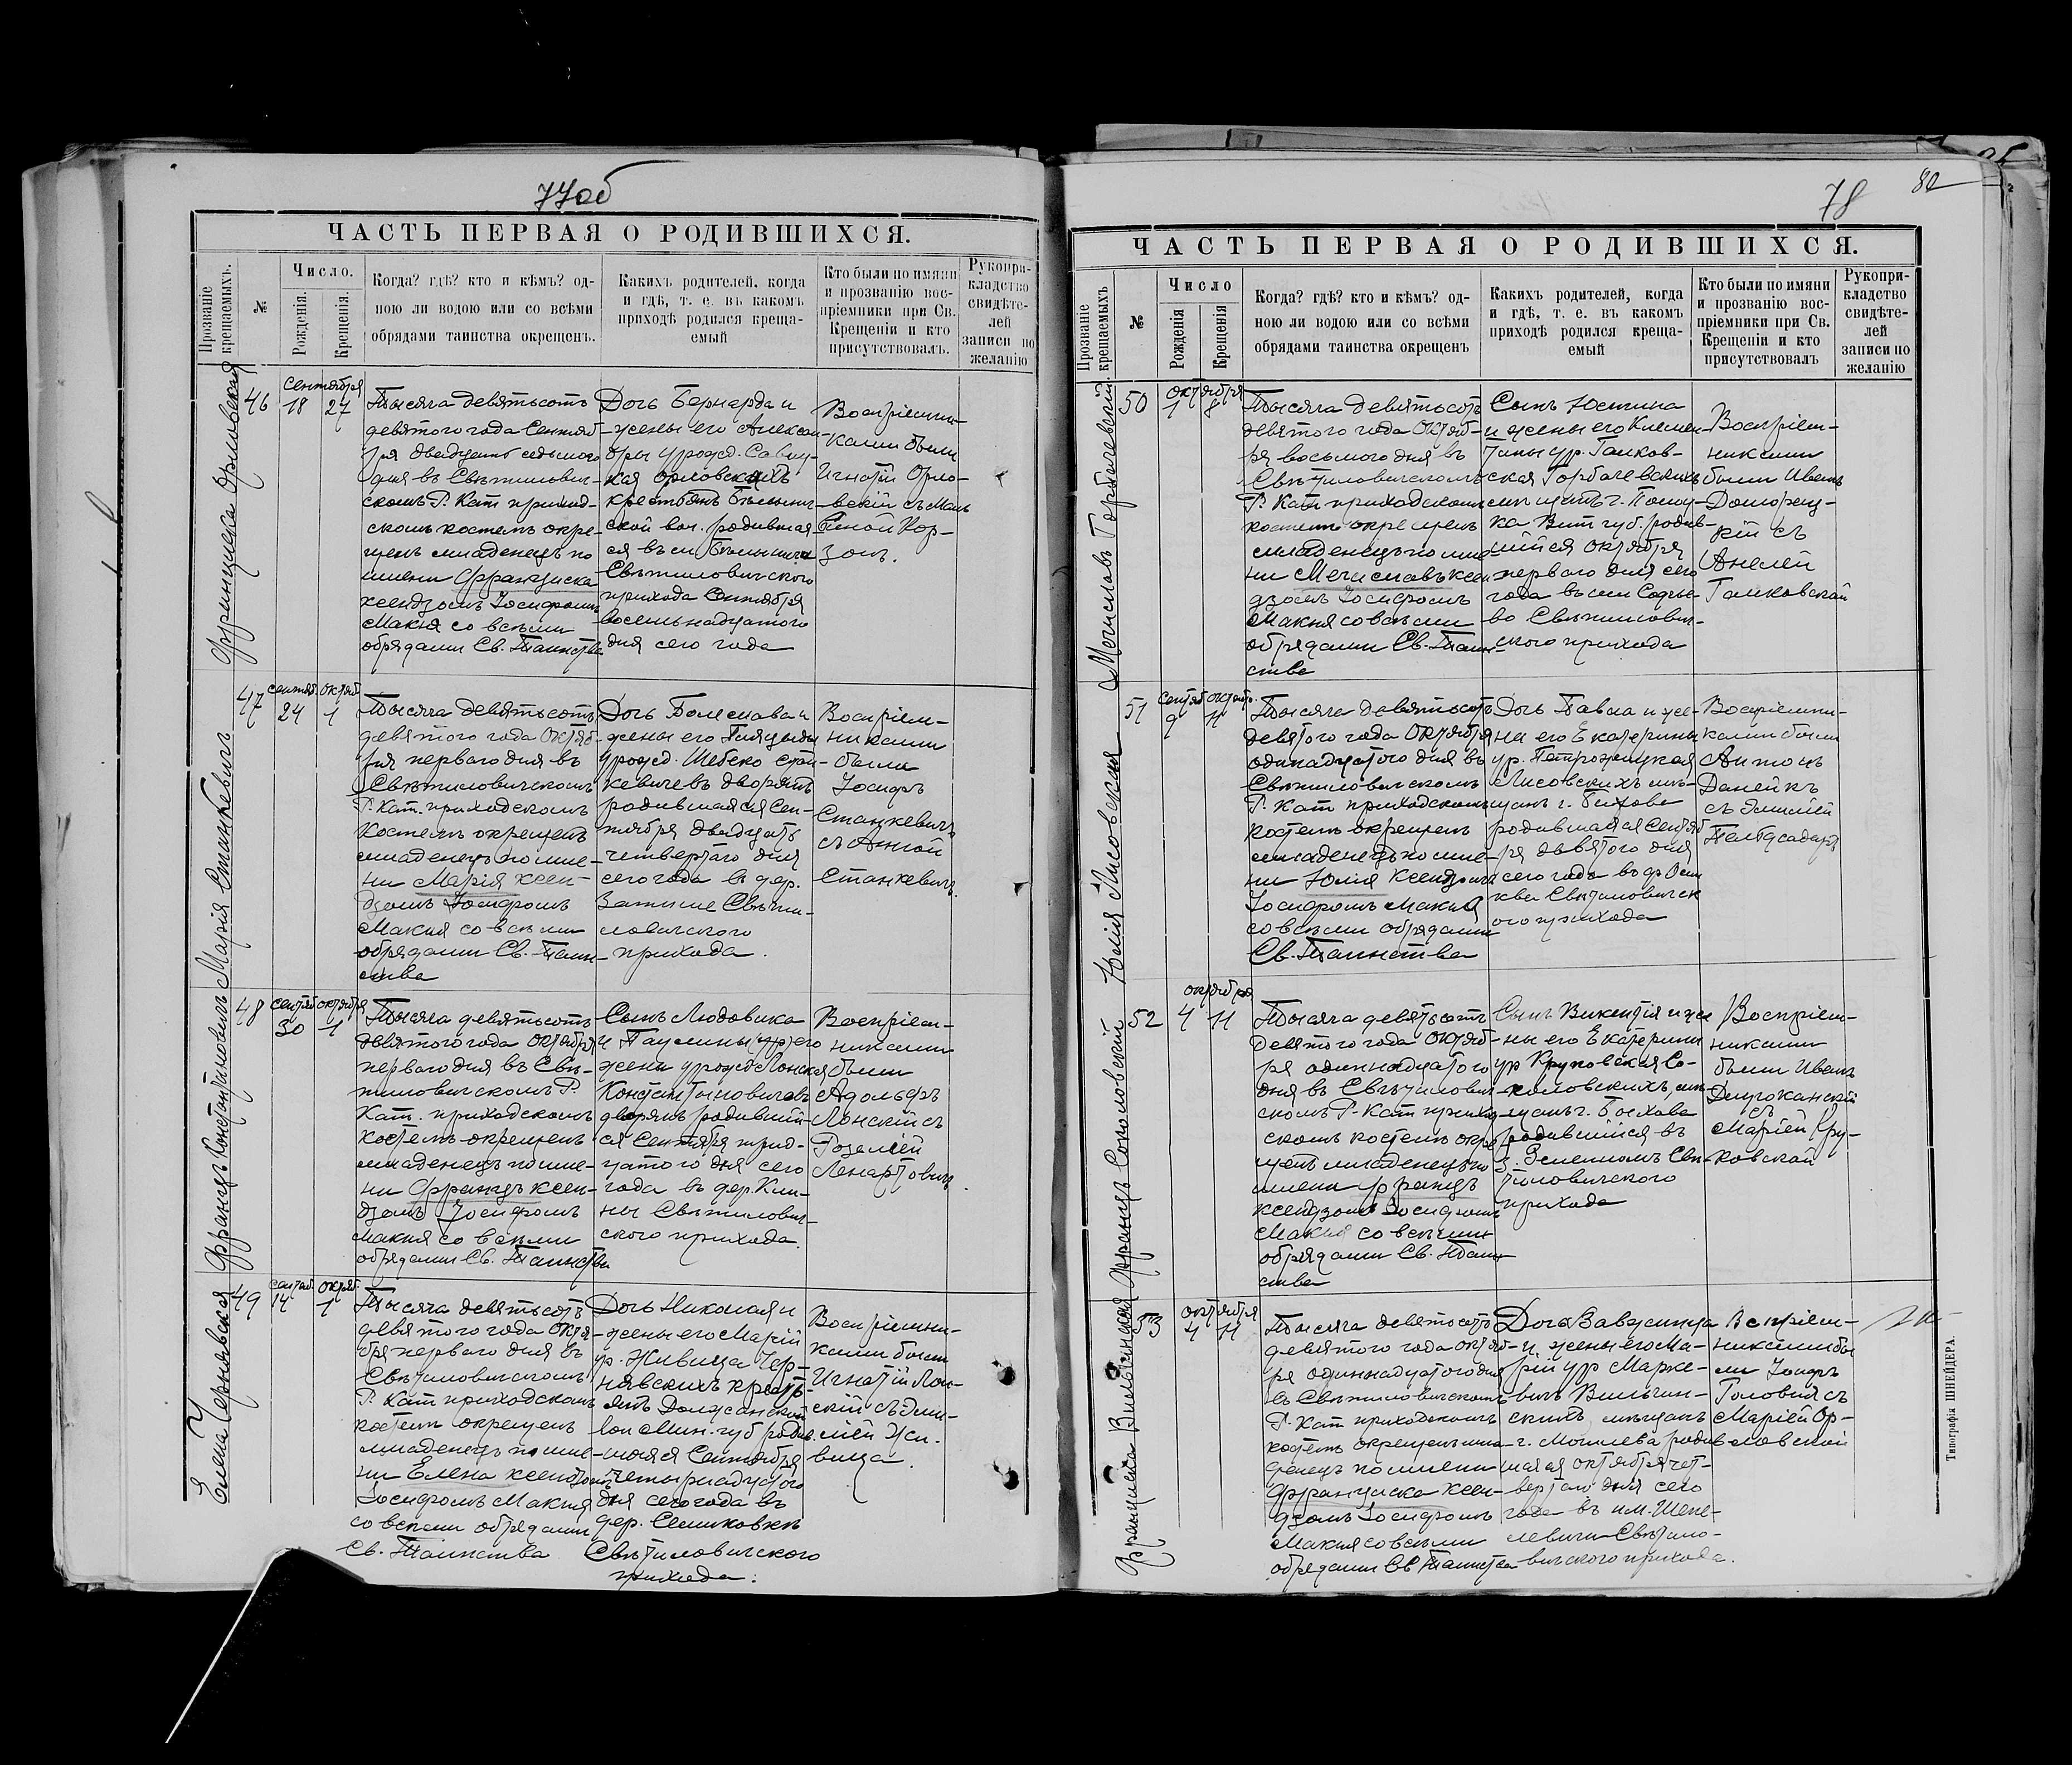 77об
ЧАСТЬ ПЕРВАЯ О РОДИВШИХСЯ.
Прозваніе крещаемыхъ.
№
Число.
Рожденія.
Крещенія.
Когда? гдѣ? кто и кѣмъ? од-
ною ли водою или со всѣми
обрядами таинства окрещенъ.
Каихъ родителей, когда
и гдѣ, т. е. въ какомъ
приходѣ родился креща-
емый
Кто были по имяни
и прозванію вос-
пріемники при Св.
Крещеніи и кто
присутствовалъ.
Рукопри-
кладство
свидѣте-
лей
записи по
желанію
Франциска Орловская
46
Сентября
18 27
Тысяча девятьсотъ
девятого года Сентяб-
ря двадцать седьмого
дня въ Свѣтилович-
скомъ Р. Кат приход-
скомъ костелѣ окре-
щенъ младенецъ по
имени Франциска
ксендзомъ Іосифомъ
Макня со всѣми
обрядами Св. Таинства
Дочь Бернарда и
жены его Алексан-
дры урожд. Савиц-
кая Орловскихъ
крестьянъ Бѣлынич-
ской вол. родившая-
ся въ м Бѣлыничи
Свѣтиловичского
прихода Сентября
восемьнадцатого
дня сего года
Воспріемни-
ками были
Игнатій Орло-
вскій съ Маль
виной Кор-
зонъ.
Марія Станкевичъ
47
Сентяб. Октяб.
24 1
Тысяча девятьсотъ
девятого года Октяб-
ря перваго дня въ
Свѣтиловичскомъ
Р. Кат. приходскомъ
костелѣ окрещенъ
младенецъ по име-
ни Марія ксен-
дзомъ Іосифомъ
Макня со всѣми
обрядами Св. Таин-
ства
Дочь Болеслава и
жены его
урожд. Шебеко Стан-
кевичевъ дворянъ
родившаяся Сен-
тября двадцать
четвертаго дня
сего года в дер.
Затише Свѣти-
ловичского
прихода.
Воспріем-
никами
были
Іосифъ
Станкевичъ
съ Анной
Станкевичъ
Францъ Константиновичъ
48
Сентяб Октября
30 1
Тысяча девятьсотъ
девятого года Октября
перваго дня въ Свѣ-
тиловичскомъ Р.
Кат. приходскомъ
костелѣ окрещенъ
младенецъ по име-
ни Францъ ксен-
дзомъ Іосифомъ
Макня со всѣми
обрядами Св. Таинства
Сынъ Людовика
и Паулины (ур) его
жены урожд Лонская
Константиновичевъ
дворянъ родивший-
ся Сентября трид-
цатого дня сего
года въ дер. Кли-
ны Свѣтилович-
ского прихода.
Воспріем-
никами
были
Адольфъ
Лонскій съ
Розаліей
Ленартовичъ
Елена Чернявская
49
Сентяб. Октяб.
14 1
Тысяча девятьсотъ
девятого года Октя-
бря перваго дня въ
Свѣтиловичскомъ
Р. Кат приходскомъ
костелѣ окрещен
младенецъ по име-
ни Елена ксендзомъ
Іосифомъ Макня
со всѣми обрядами
Св. Таинства
Дочь Николая и
жены его Марій
ур. Живица Чер-
нявскихъ кресть-
янъ
вол Мин. губ родив-
шаяся Сентября
четырнадцатого
дня сего года въ
дер. Сешковкѣ
Свѣтиловичского
прихода.
Воспріемни-
ками были
Игнатій Лон-
скій съ Эми-
ліей Жи-
вица.
78
82
ЧАСТЬ ПЕРВАЯ О РОДИВШИХСЯ.
Прозваніе крещаемыхъ
№
Число
Рожденія
Крещенія
Когда? гдѣ? кто и кѣмъ? од-
ною ли водою или со всѣми
обрядами таинства окрещенъ
Какихъ родителей, когда
и гдѣ, т. е. въ какомъ
приходѣ родился креща-
емый
Кто были по имяни
и прозванію вос-
пріемники при Св.
Крещеніи и кто
присутствовалъ
Рукопри-
кладство
свидѣте-
лей
записи по
желанію
Мечиславъ Горбачевскій
50
Октября
1 8
Тысяча девятьсотъ
девятого года Октяб-
ря восьмого дня въ
Свѣтиловичскомъ
Р. Кат приходскомъ
костелѣ окрещенъ
младенецъ по име
ни Мечиславъ ксен
дзомъ Іосифомъ
Макня со всѣми
обрядами Св. Таин-
ства
Сынъ Юстина
и жены его Клемен-
тины ур. Галков-
ская Горбачевскихъ
мѣщанъ г. Полоц-
ка Вит губ. родив-
шійся Октября
перваго дня сего
года въ
во Свѣтилович-
ского прихода
Воспріем-
никами
были Иванъ
Доморец-
кій съ
Анелей
Галковской
Юлія Лисовская
51
Сентяб Октябр.
9 11
Тысяча девятьсотъ
девятого года Октября
одинадцатого дня въ
Свѣтиловичскомъ
Р. Кат приходскомъ
костелѣ окрещенъ
младенецъ по име-
ни Юлія ксендзомъ
Іосифомъ Макня
со всѣми обрядами
Св. Таинства
Дочь Павла и же-
ны его Екатерины
ур.
Лисовскихъ мѣ-
щанъ г. Быхова
родившаяся Сентяб
ря девятого дня
сего года въ д
Свѣтиловичск
ого прихода
Воспріемни-
ками были
Антонъ
Данейкъ
съ Эмиліей
Францъ Соколовскій
52
Октября
4 11
Тысяча девятьсотъ
девятого года Октяб-
ря одиннадцатого
дня въ Свѣтилович-
скомъ Р. Кат приход-
скомъ костелѣ окре
щенъ младенецъ по
имени Францъ
ксендзомъ Іосифомъ
Макня со всѣми
обрядами Св. Таин-
ства
Сынъ Викентія и же
ны его Екатерины
ур Круповская Со-
коловскихъ, мѣ-
щанъ г. Быхова
родившійся въ
Свѣ-
тиловичского
прихода
Воспріем-
никами
были Иванъ
съ
Маріей Кру-
ковской
Франциска Вильчинская
53
Октября
4 11
Тысяча девятьсотъ
девятого года октяб-
ря одиннадцатого дня
въ Свѣтиловичскомъ
Р. Кат приходскомъ
костелѣ окрещенъ мла-
денецъ по имени
Франциска ксен-
дзомъ Іосифомъ
Макня со всѣми
обрядами Св Таинства
Дочь Вавжинца
и жены его Ма-
ріи ур Марке-
вичъ Вильчин-
скихъ мѣщанъ
г. Могилева родив-
шаяся октября чет-
вертаго дня сего
года въ им. Шепе-
левичи Свѣтило-
вичского прихода.
Воспріем-
никами бы
ли Іосифъ
Головня съ
Маріей Ор-
ловской
Типографія ШНЕЙДЕРА.